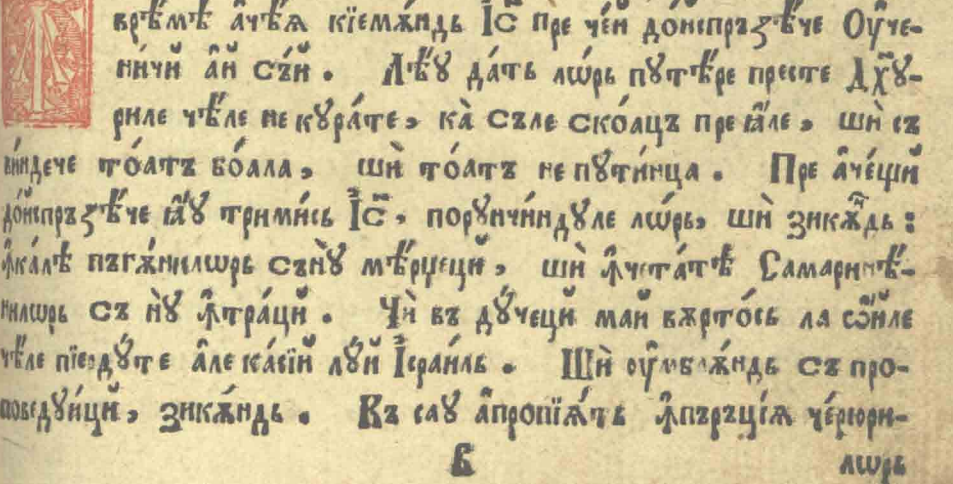 врѣ́мѣ а҆чѣѧ кїемѫндь І҆с҃ пре че́й до́йспрѫзѣ́че Оу҆че-
ничй а҆й съ́й . Лѣ́ꙋ да́ть лѡрь пꙋтѣ́ре престе Дх҃ꙋ-
риле чѣ́ле некꙋра́те, ка̀ съле ско́ацъ пре ꙗ҆́ле, шѝ съ
ви́ндече то́атъ бо́ала, шѝ то́атъ непꙋти́нца . Пре а҆че́щй
до́йспръзѣ́че ꙗ҆́ꙋ тримйсь І҆с҃, порꙋнчи́ндꙋле лѡрь, шѝ зикѫ́ндь :
ꙟ҆ка́лѣ пъгѫ́нилѡрь съ́нꙋ мѣ́рџецй, шѝ ꙟ҆чета́тѣ Самаринѣ́-
нилѡрь съ нꙋ̀ ꙟ҆тра́цй . Чѝ въ дꙋ́чецй май вѫрто́сь ла ѻ҆́йле
чѣ́ле пїердꙋ́те а҆ле ка́сїй лꙋ́й І҆сраи́ль . Шѝ оу҆мблѫ́ндь съ про-
поведꙋи́цй, зикѫ́ндь . Къ сау а҆пропїѧ́ть ꙟ҆пъръці́ѧ че́рюри-
В
лѡрь